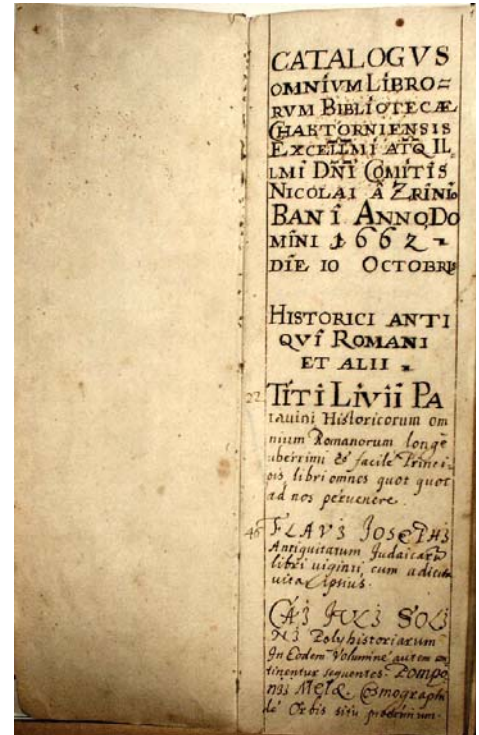 CATALOGVS
OMNIVM LIBRO=
RVM BIBLIOTECÆ
CHAKTORNIENSIS
EXCELLMI ATQ IL
LMI DÑI COMITIS
NICOLAI A ZRINIO
BANI ANNO DO
MINI 1662
DIE 10 OCTOBRIS
HISTORICI ANTI
QVI ROMANI
ET ALII
22 TITI LIVII PA
tauini Historicorum om
nium Romanorum longe
uberrimi & facile Princi
pis libri omnes quot quot
ad nos peruenere.
46 FLAVJ JOSEPHJ
Antiquitatum Judaicarū
libri uiginti, cum adiecta
uita ipsius.
CAJ JULJ SOLJ
NJ Polyhistoriarum
In Eodem Volumine autem con
tinentur sequentes. Pompo
nij Melæ Cosmographi
de Orbis situ